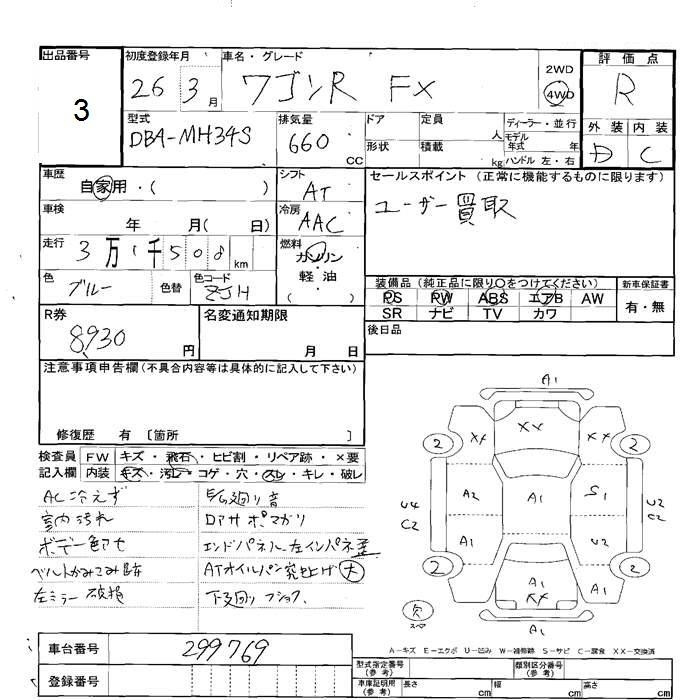 出品番号
3
初度登録年月
26 3月
車名・グレード
ワゴンR FX
2WD
4WD
評価点
R
型式
DBA-MH34S
排気量
660 CC
ドア
定員
人
形状
積載
kg
ディーラー・並行
モデル
年式 年
ハンドル 左・右
外装 内装
D C
車歴
自家用・( )
シフト
AT
セールスポイント (正常に機能するものに限ります)
ユーザー買取
車検
年 月( 日)
冷房
AAC
走行
3万1千508km
燃料
ガソリン
・
軽油
( )
色
ブルー
色替
色コード
ZJH
装備品 (純正品に限り○をつけてください)
PS PW ABS エアB AW
SR ナビ TV カワ
新車保証書
有・無
R券
8,930円
名変通知期限
月 日
後日品
注意事項申告欄(不具合内容等は具体的に記入して下さい)
修復歴 有 〔箇所 〕
検査員
記入欄
FW キズ・飛石・ヒビ割・リペア跡・×要
内装 キズ・汚レ・コゲ・穴・スレ・キレ・破レ
AC冷えず
室内汚れ
ボデー色アセ
左ミラー破損
ドアサボマガリ
エンドパネル・左インパネ歪
ATオイルパン突上げ大
下廻りフショク
A1
XX
2 XX XX 2
U4
C2
A2
A1
S1
U2
C2
A1
U2
2 A1 A1 A1 2
XX
欠
スペア
A1
A-キズ E-エクボ U-凹み W-補修跡 S-サビ C-腐食 XX-交換済
車台番号
299769
登録番号
型式指定番号
(参考)
類別区分番号
(参考)
車庫証明用
(参考)
長さ cm
幅 cm
高さ cm